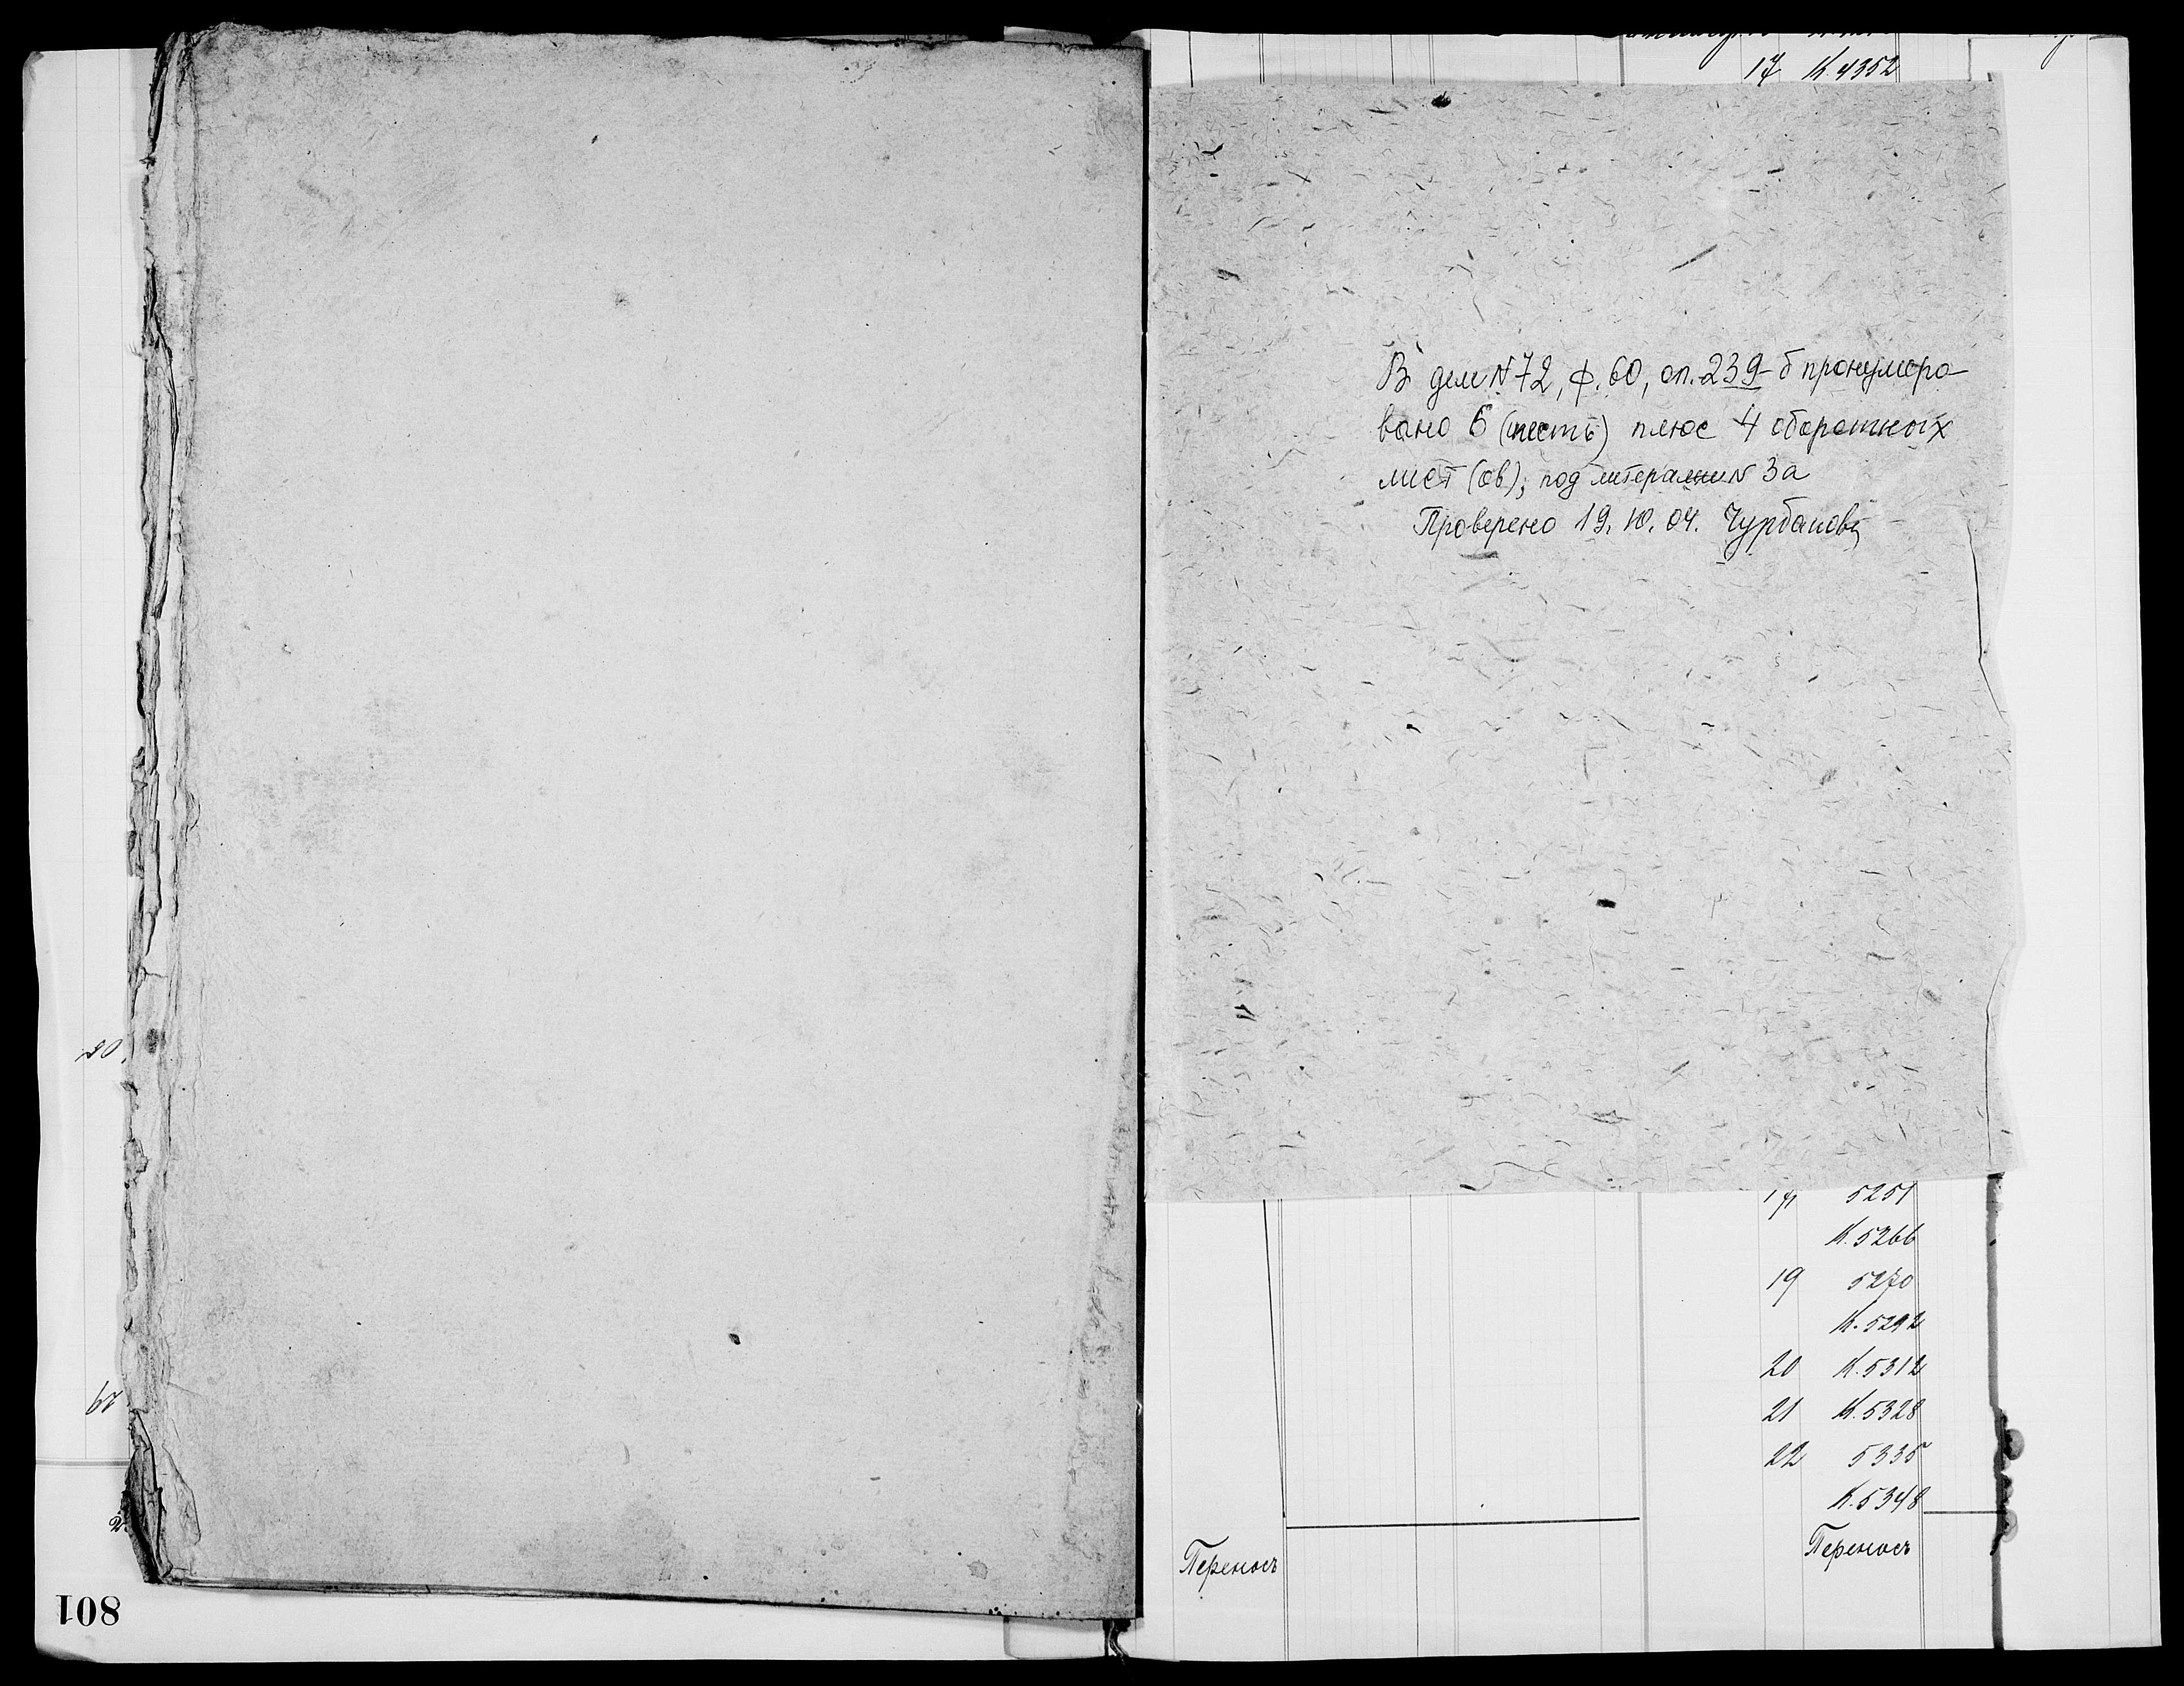 17 К. 4352
В деле N 72, ф. 60, оп. 239-б пронумеро-
вано 6 (шесть) плюс 4 оборотных
лист (ов); под литерами N 3а
Проверено 19. 10. 04. Чурбанова
17 5251
К. 5266
19 5270
К. 5292
20 К. 5312
21 К. 5328
22 5335
К. 5348
Переносъ Переносъ
20
801